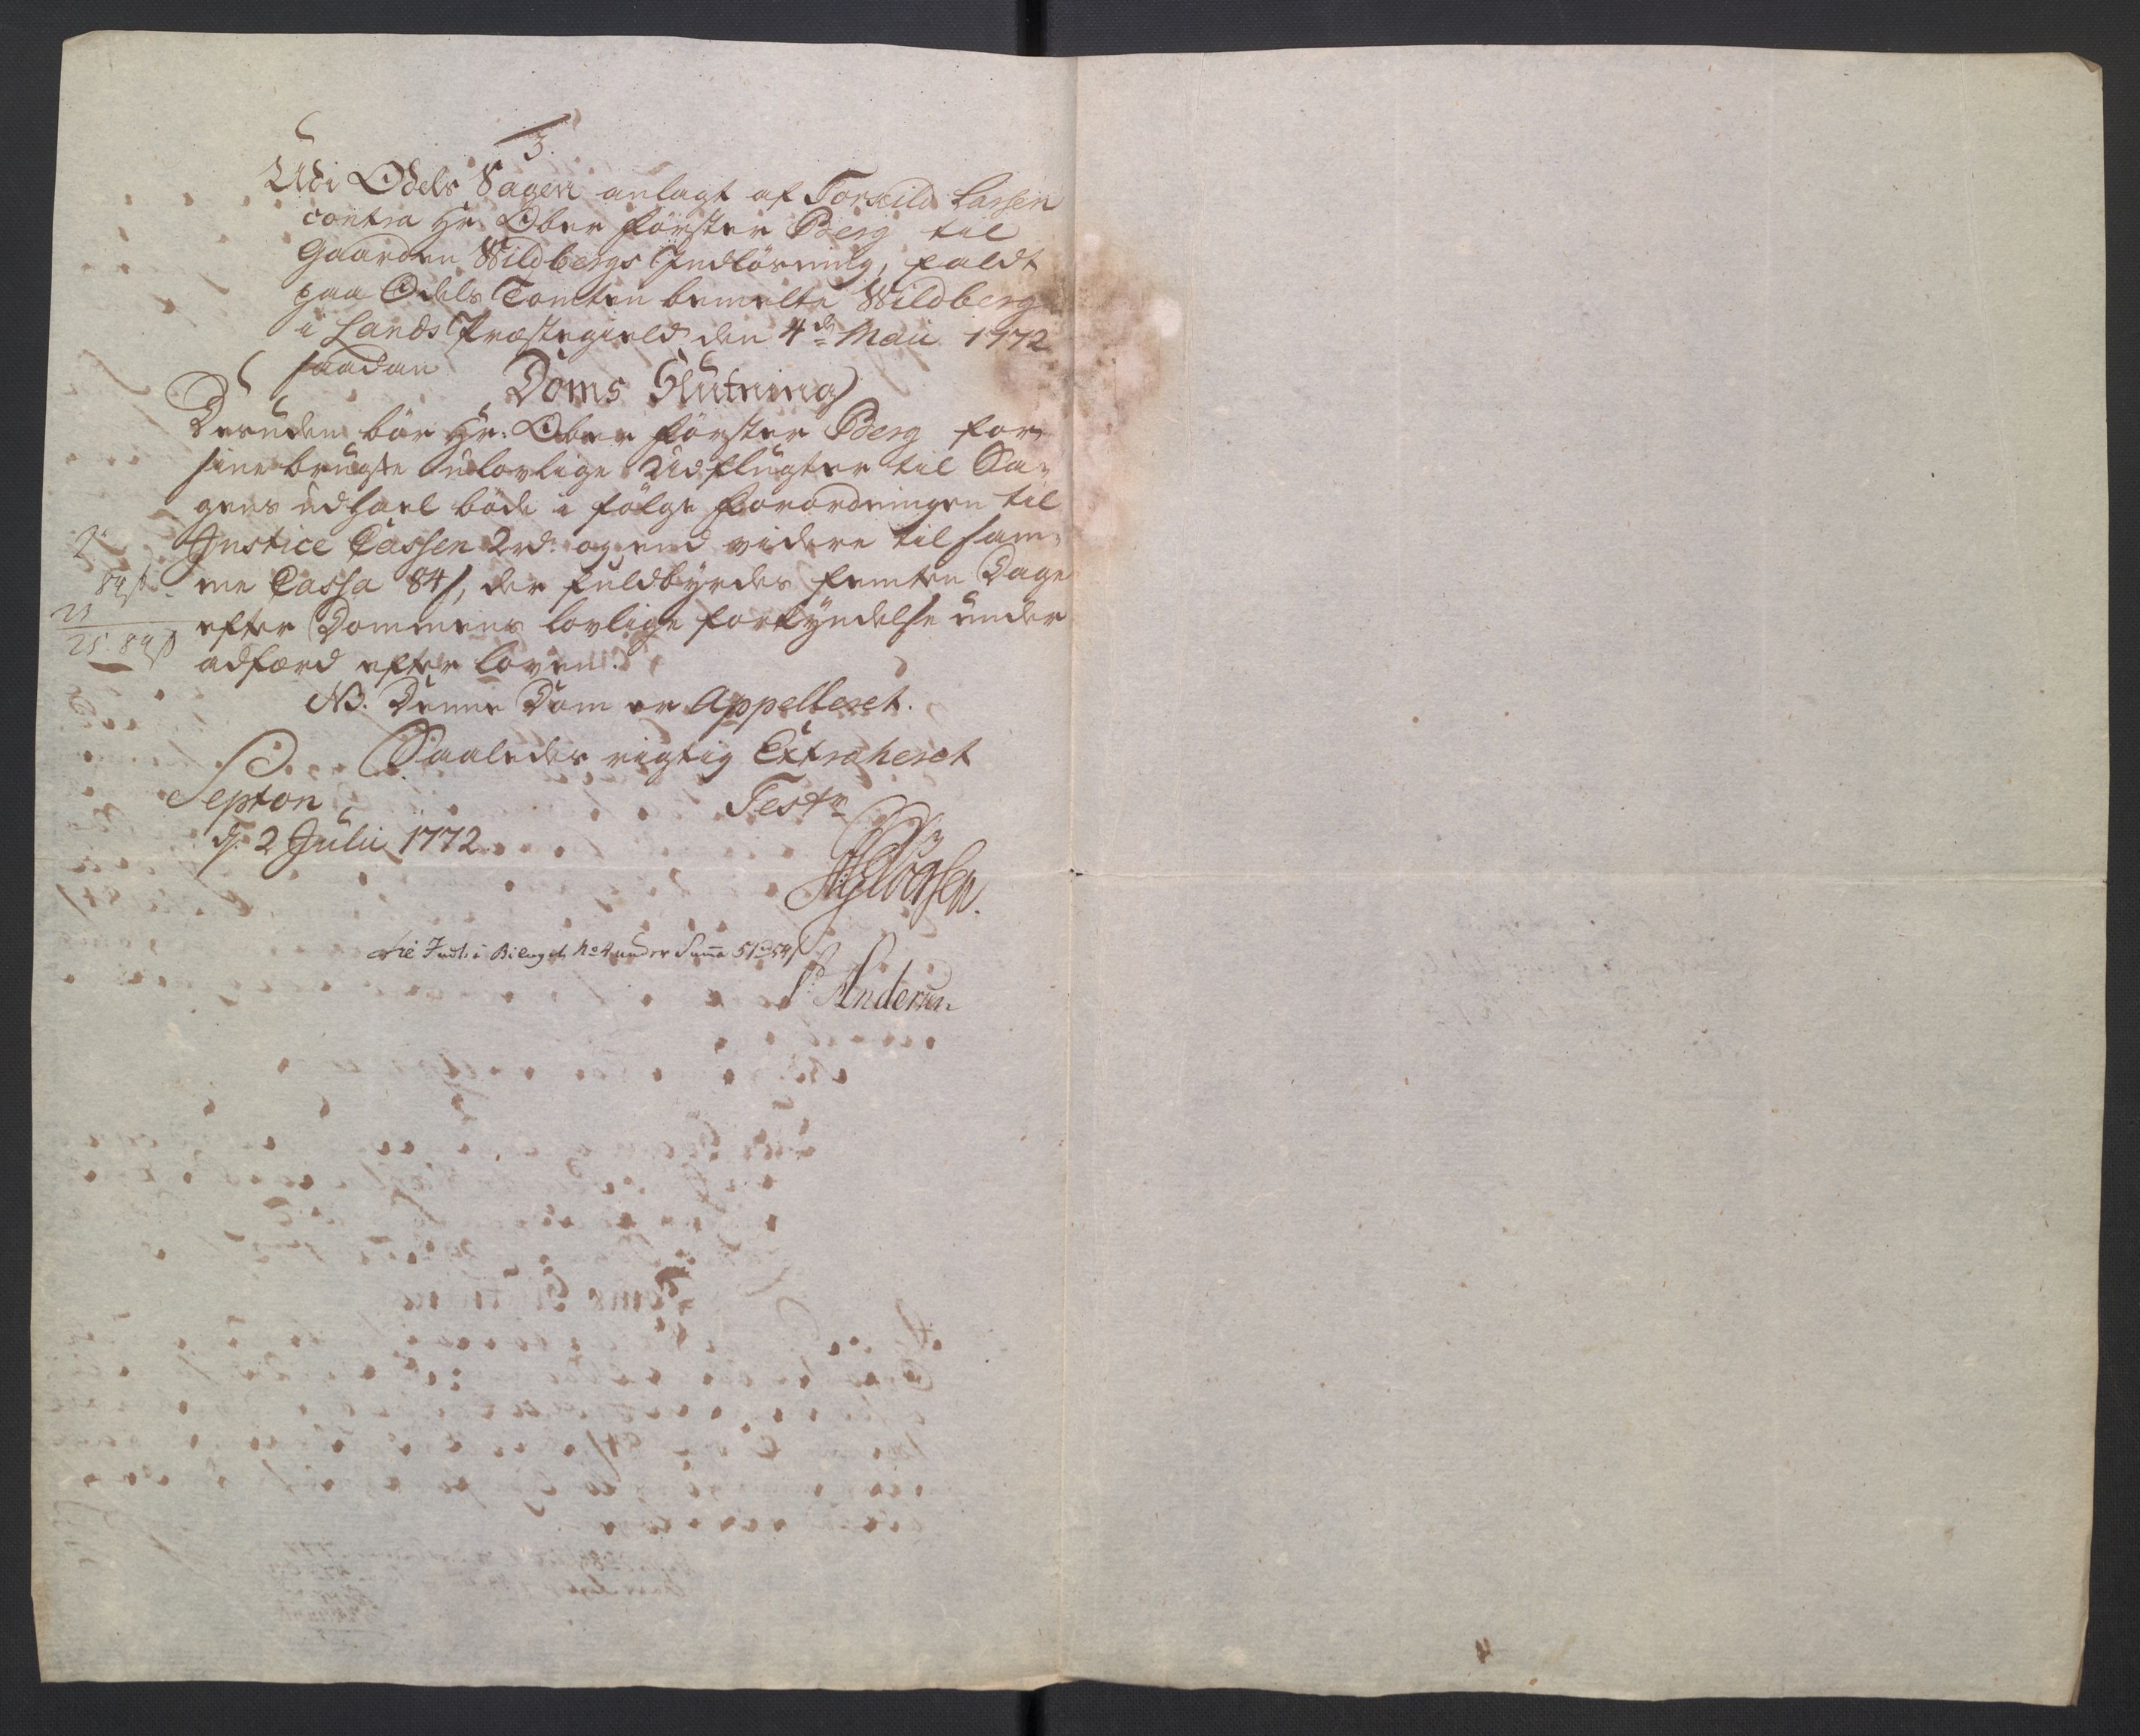 3.
Udi Odels Sagen anlagt af Torkild Larsen
contra Hr. Ober Förster Berg til
Gaarden Wildbergs Indlösning, faldt
paa Odels Tomten bemelte Wildberg
i Lands Præstegield den 4de Maii 1772
saadan
Doms Slutning
Desuden bör Hr: Ober Förster Berg for
sine brugte ulovlige Udflugter til Sa-
gens udhael böde i fölge Forordningen til
Justice Cassen 2rd: og end videre til sam-
me Cassa 84s, der fuldbyrdes femten Dage
efter Dommens lovlige forkyndelse under
adfærd efter loven.
2
84s
23
25. 84s
NB. Denne Dom er Appelleret.
Saaledes rigtig Extraheret
Septon
Teste
d: 2 Julii 1772.
Er Indt. i Bilaget No 4 under Suma 51rd 54s
Andersen